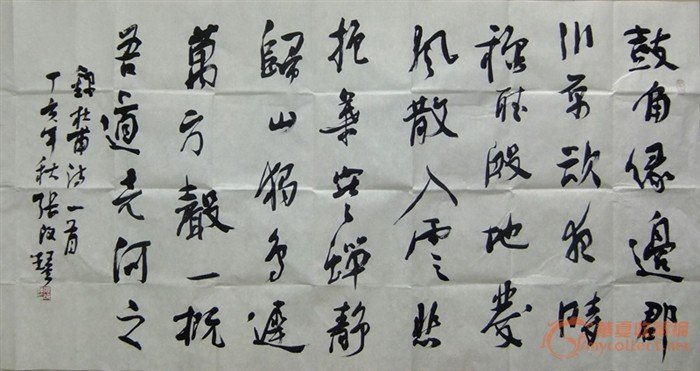 鼓角緣邊郡
川原欲夜時
秋聽殷地發
風散入雲悲
抱葉寒蟬靜
歸山獨鳥遲
萬方聲一概
吾道竟何之
錄杜甫詩一首
丁亥年秋張改琴
mycollect.net